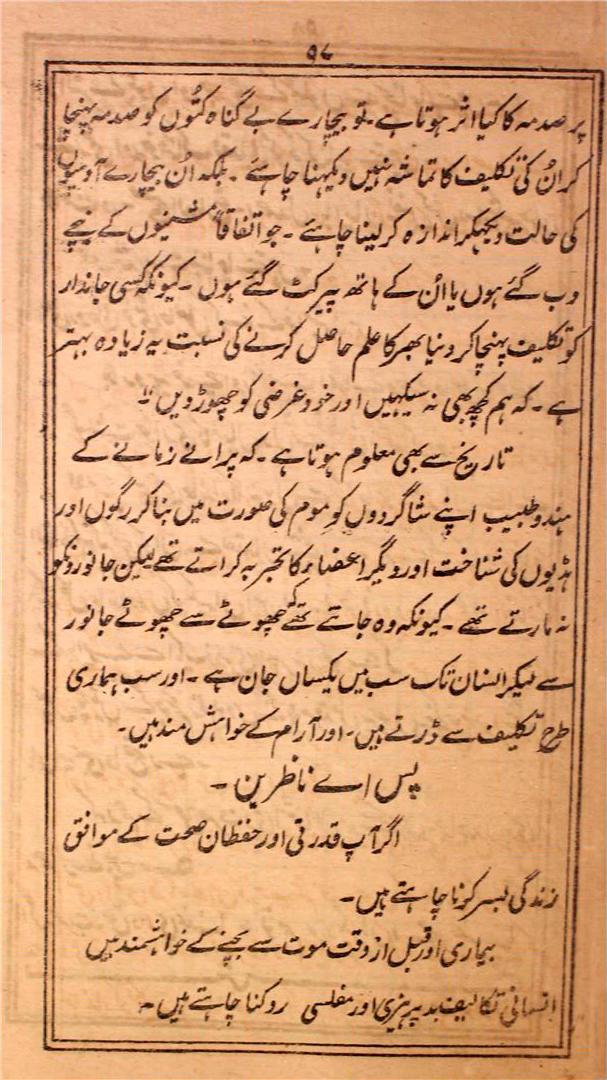 ۹۷
پر صدمہ کا کیا اثر ہوتا ہے۔ تو بیچارے بے گناہ کتُّوں کو صدمہ پہنچا
کر اُن کی تکلیف کا تماشہ نہیں دیکہنا چاہئے۔ بلکہ اُن بیچارے آدمیوں
کی حالت دیکھکر اندازہ کرلینا چاہئے۔ جو اتفاقاً مشینوں کے نیچے
دب گئے ہوں یا اُن کے ہاتھ پیر کٹ گئے ہوں۔ کیونکہ کسی جاندار
کو تکلیف پہنچا کر دنیا بھر کا علم حاصل کرنے کی نسبت یہ زیادہ بہتر
ہے۔ کہ ہم کچھ بھی نہ سیکہیں اور خود غرضی کو چھوڑ دیں"
تاریخ سے بھی معلوم ہوتا ہے۔ کہ پرانے زمانے کے
ہندو طبیب اپنے شاگردوں کو موم کی صورت میں بنا کر رگوں اور
ہڈیوں کی شناخت اور دیگر اعضاء کا تجربہ کراتے تھے لیکن جانورونکو
نہ مارتے تھے۔ کیونکہ وہ جانتے تھے کہ چھوٹے سے چھوٹے جانور
سے لیکر انسان تک سب میں یکساں جان ہے۔ اور سب ہماری
طرح تکلیف سے ڈرتے ہیں۔ اور آرام کے خواہش مند ہیں۔
پس اے ناظرین۔
اگر آپ قدرتی اور حفظان صحت کے موافق
زندگی بسر کرنا چاہتے ہیں۔
بیماری اور قبل از وقت موت سے بچنے کے خواہشمند ہیں
انسانی تکالیف بد پرہیزی اور مفلسی روکنا چاہتے ہیں۔